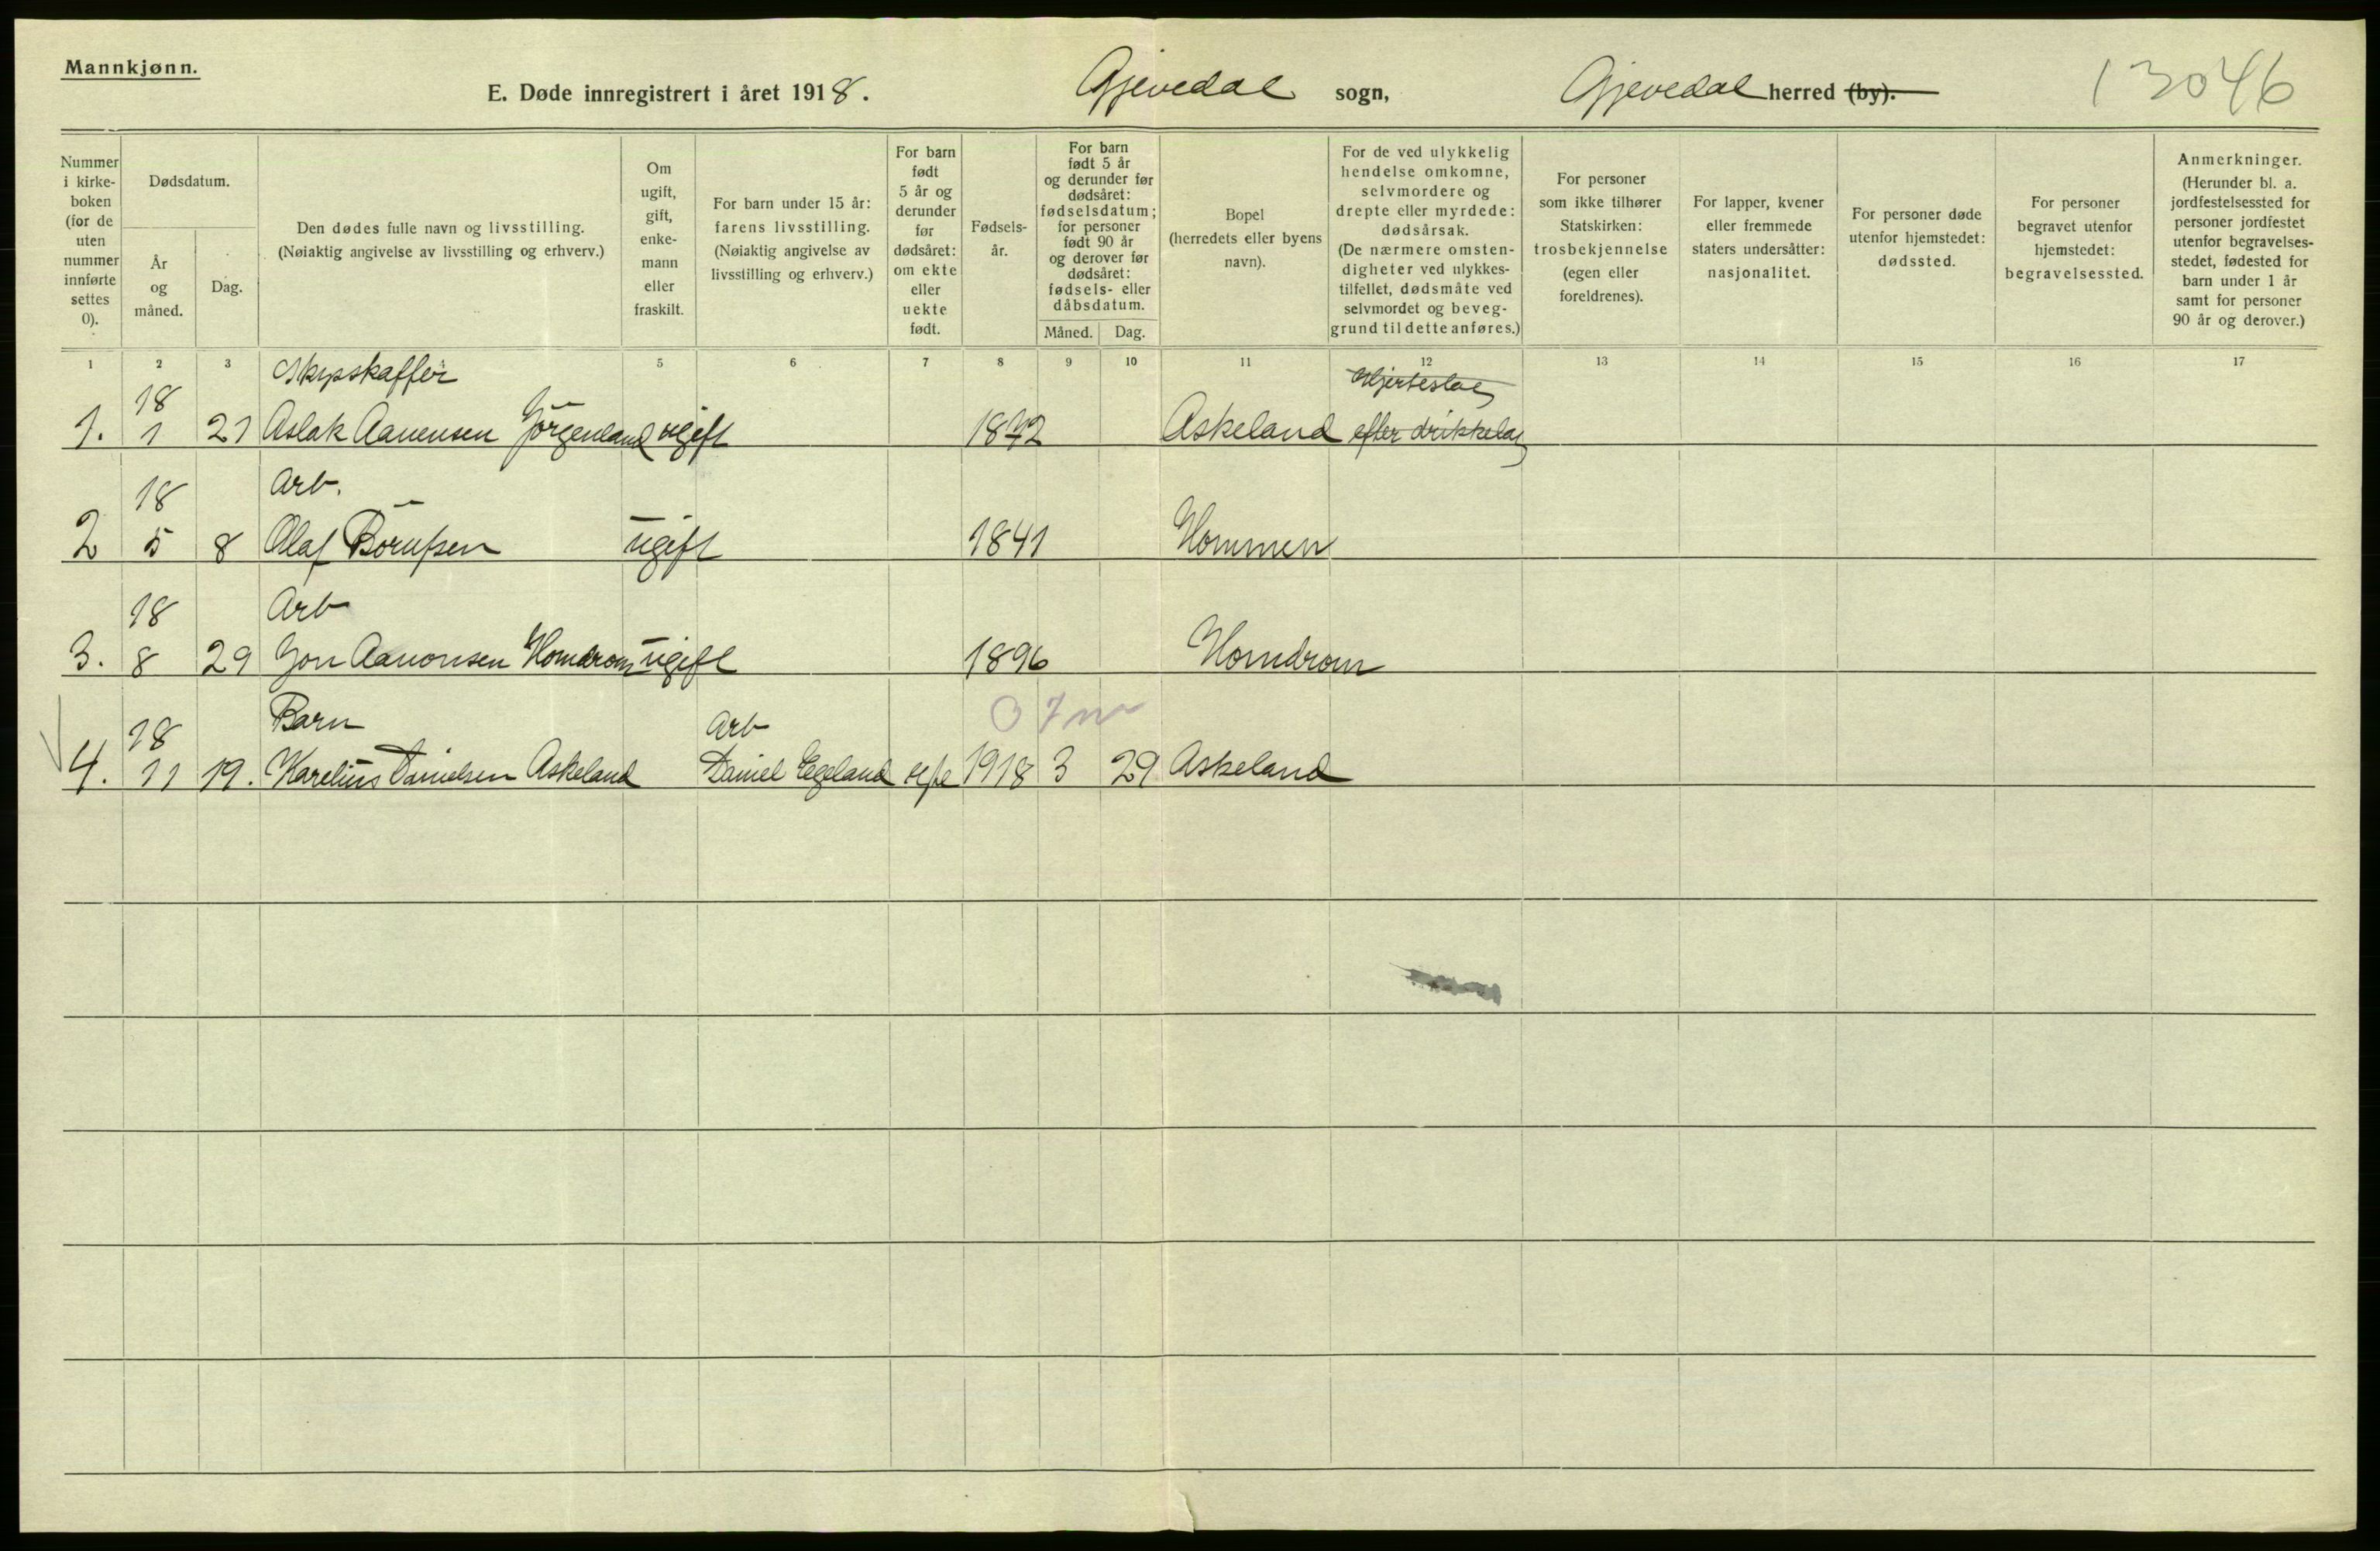 Mannkjønn.
E. Døde innregistrert i året 1918. Gjevedal sogn, Gjevedal herred (by). 13046
Nummer i kirke-boken (for de uten nummer innførte settes 0).
Dødsdatum.
År og måned.
Dag.
Den dødes fulle navn og livsstilling.
(Nøiaktig angivelse av livsstilling og erhverv.)
Om ugift, gift, enke-mann eller fraskilt.
For barn under 15 år: farens livsstilling.
(Nøiaktig angivelse av livsstilling og erhverv.)
For barn født 5 år og derunder før dødsåret: om ekte eller uekte født.
Fødsels-år.
For barn født 5 år og derunder før dødsåret: fødselsdatum; for personer født 90 år og derover før dødsåret: fødsels- eller dåbsdatum.
Måned. Dag.
Bopel (herredets eller byens navn).
For de ved ulykkelig hendelse omkomne, selvmordere og drepte eller myrdede: dødsårsak.
(De nærmere omsten-digheter ved ulykkes-tilfellet, dødsmåte ved selvmordet og beveg-grund til dette anføres.)
For personer som ikke tilhører Statskirken: trosbekjennelse (egen eller foreldrenes).
For lapper, kvener eller fremmede staters undersåtter: nasjonalitet.
For personer døde utenfor hjemstedet: dødssted.
For personer begravet utenfor hjemstedet: begravelsessted.
Anmerkninger.
(Herunder bl. a. jordfestelsessted for personer jordfestet utenfor begravelses-stedet, fødested for barn under 1 år samt for personer 90 år og derover.)
1 2 3 5 6 7 8 9 10 11 12 13 14 15 16 17
18 Skysskaffer Hjerteslag
1. 1 21 Aslak Aanensen Jörgenland ugift 1872 Askeland efter drikkelag
18 Arb.
2 5 8 Olaf ugift 1841 Hommen
18 Arb
3. 8 29 Jon Aanonsen Homdrom ugift 1896 Homdrom
18 Barn Arb 0 7 m
4. 11 19. Karelius Danielsen Askeland Daniel Egeland 1918 3 29 Askeland